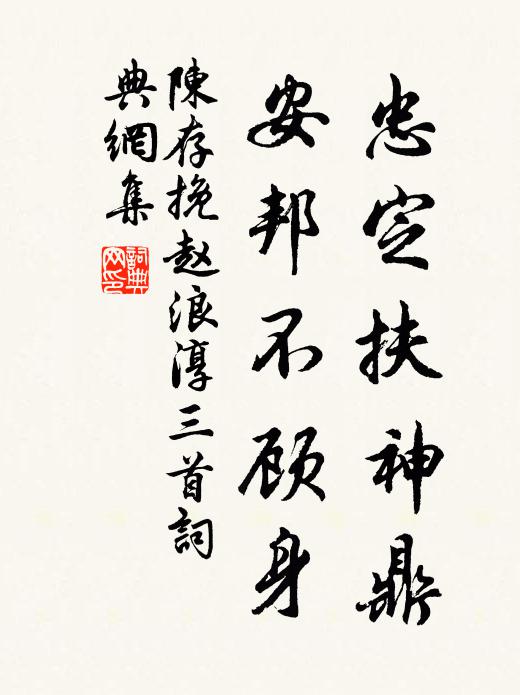 忠定扶神鼎
安邦不顾身
陳存挽赵浪淳三首詞
典網集
詞典
网印